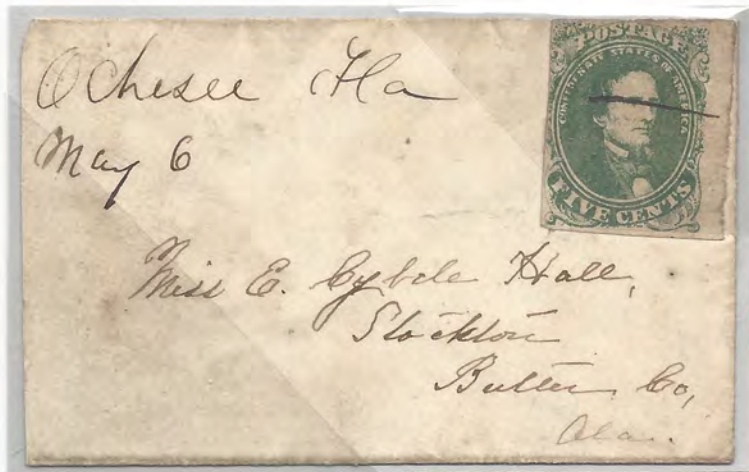 Ochesee Fla
May 6
POSTAGE
CONFEDERATE STATES OF AMERICA
FIVE CENTS
Miss E. Cybele Hall,
Stockton
Butler Co,
Ala.